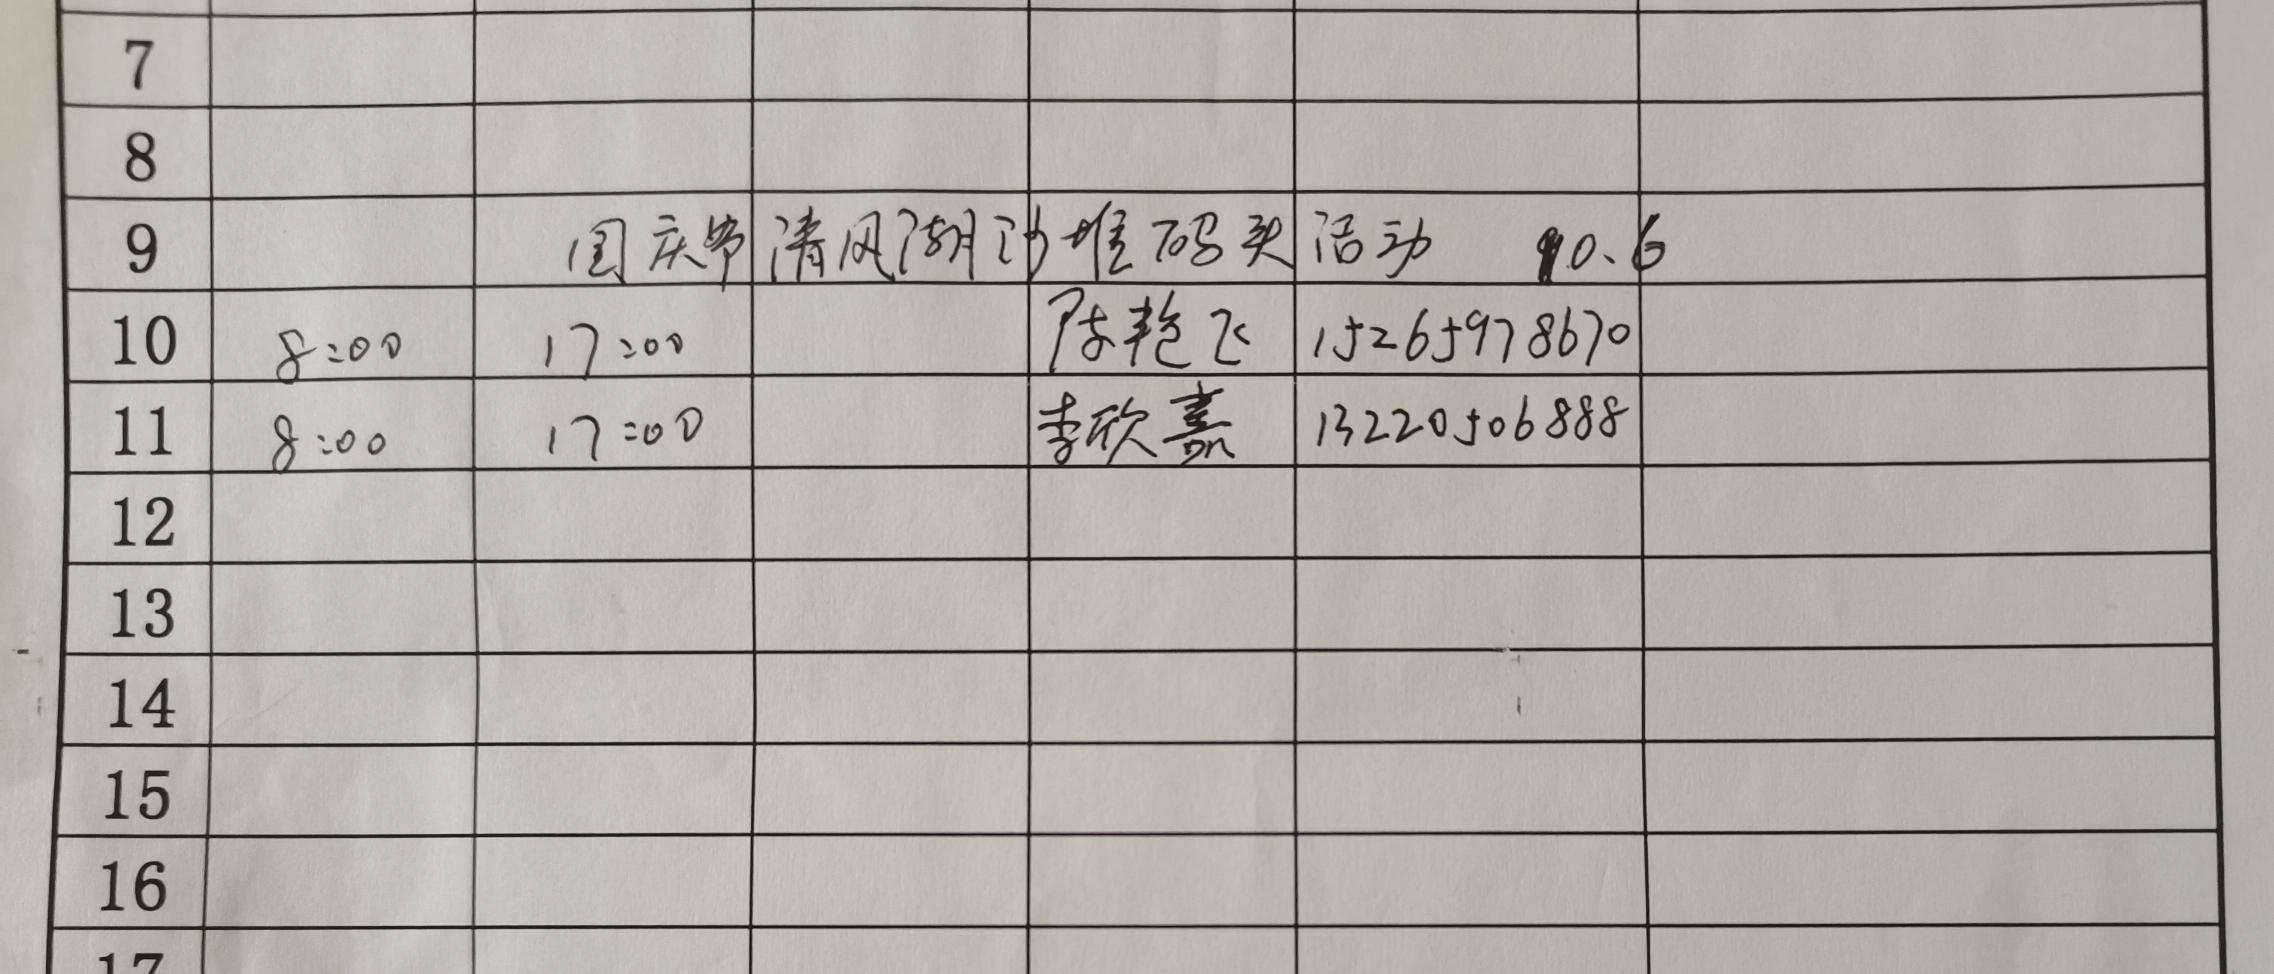 7
8
9 国庆节清风湖沙堆码头活动 10.6
10 8:00 17:00 陈艳飞 15265978670
11 8:00 17:00 李欣嘉 13220506888
12
13
14
15
16
17